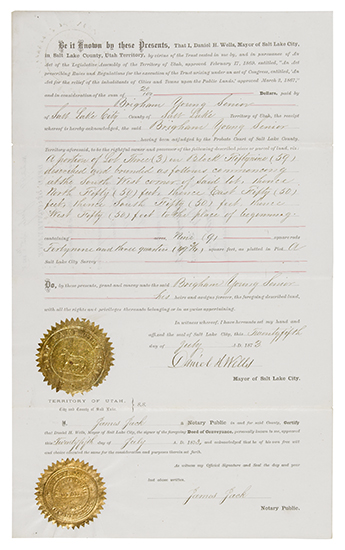 Be it Known by these Presents, That I, Daniel H. Wells, Mayor of Salt Lake City,
in Salt Lake County, Utah Territory, by virtue of the trust vested in me by, and in pursuance of an
Act of the Legislative Assembly of the Territory of Utah, approved February 17, 1869, entitled, "An Act
prescribing Rules and Regulations for the execution of the Trust arising under an Act of Congress, entitled, 'An
Act for the relief of the inhabitants of Cities and Towns upon the Public Lands,' approved March 2, 1867,"
and in consideration of the sum of Dollars, paid by
Brigham Young Senior
of Salt Lake City County of Salt Lake Territory of Utah, the receipt
whereof is hereby acknowledged, the said Brigham Young Senior
having been adjudged by the Probate Court of Salt Lake County,
Territory aforesaid, to be the rightful owner and possessor of the following described piece or parcel of land, viz:
A portion of Lot Three (3) in Block Fiftynine (59)
described and bounded as follows commencing
at the South West corner of said lot thence
North Fifty (50) feet thence East Fifty (50)
feet thence South Fifty (50) feet thence
West Fifty (50) feet to the place of beginning
containing Nine (9)
Fortynine and three quarters square feet, as platted in Plat A
Salt Lake City Survey
Do, by these presents, grant and convey unto the said Brigham Young Senior
his heirs and assigns forever, the foregoing described land,
with all the rights and privileges thereunto belonging or in anywise appertaining.
In witness whereof, I have hereunto set my hand and
affixed the seal of Salt Lake City, this Twentyfifth
day of July A. D. 187
Daniel H Wells
Mayor of Salt Lake City.
TERRITORY OF UTAH,
City and County of Salt Lake. ss.
I, James Jack a Notary Public in and for said County, Certify
that Daniel H. Wells, Mayor of Salt Lake City, the signer of the foregoing Deed of Conveyance, personally known to me, appeared
this Twentyfifth day of July A. D. 187 and acknowledged that he of his own free will
and choice executed the same for the consideration and purposes therein set forth.
As witness my Official Signature and Seal the day and year
last above written.
James Jack
Notary Public.